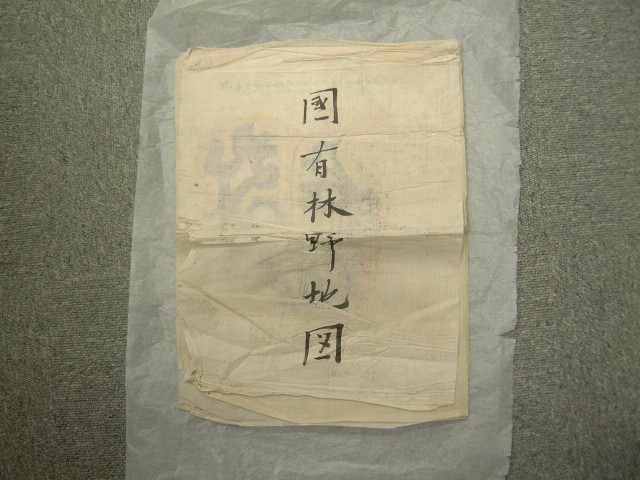 國有林野地図